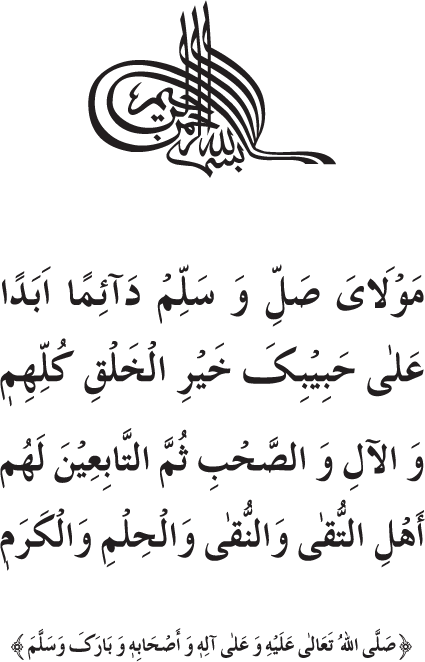 بسم الله الرحمن الرحيم
مَوْلَايَ صَلِّ وَ سَلِّمْ دَآئِمًا اَبَدًا
عَلٰى حَبِيْبِكَ خَيْرِ الْخَلْقِ كُلِّهِمٖ
وَ الآلِ وَ الصَّحْبِ ثُمَّ التَّابِعِيْنَ لَهُم
أَهْلِ التُّقٰى وَالنُّقٰى وَالْحِلْمِ وَالْكَرَمٖ
﴿صَلَّى اللهُ تَعَالٰى عَلَيْهِ وَ عَلٰى آلِهٖ وَ أَصْحَابِهٖ وَ بَارَكَ وَسَلَّمَ﴾